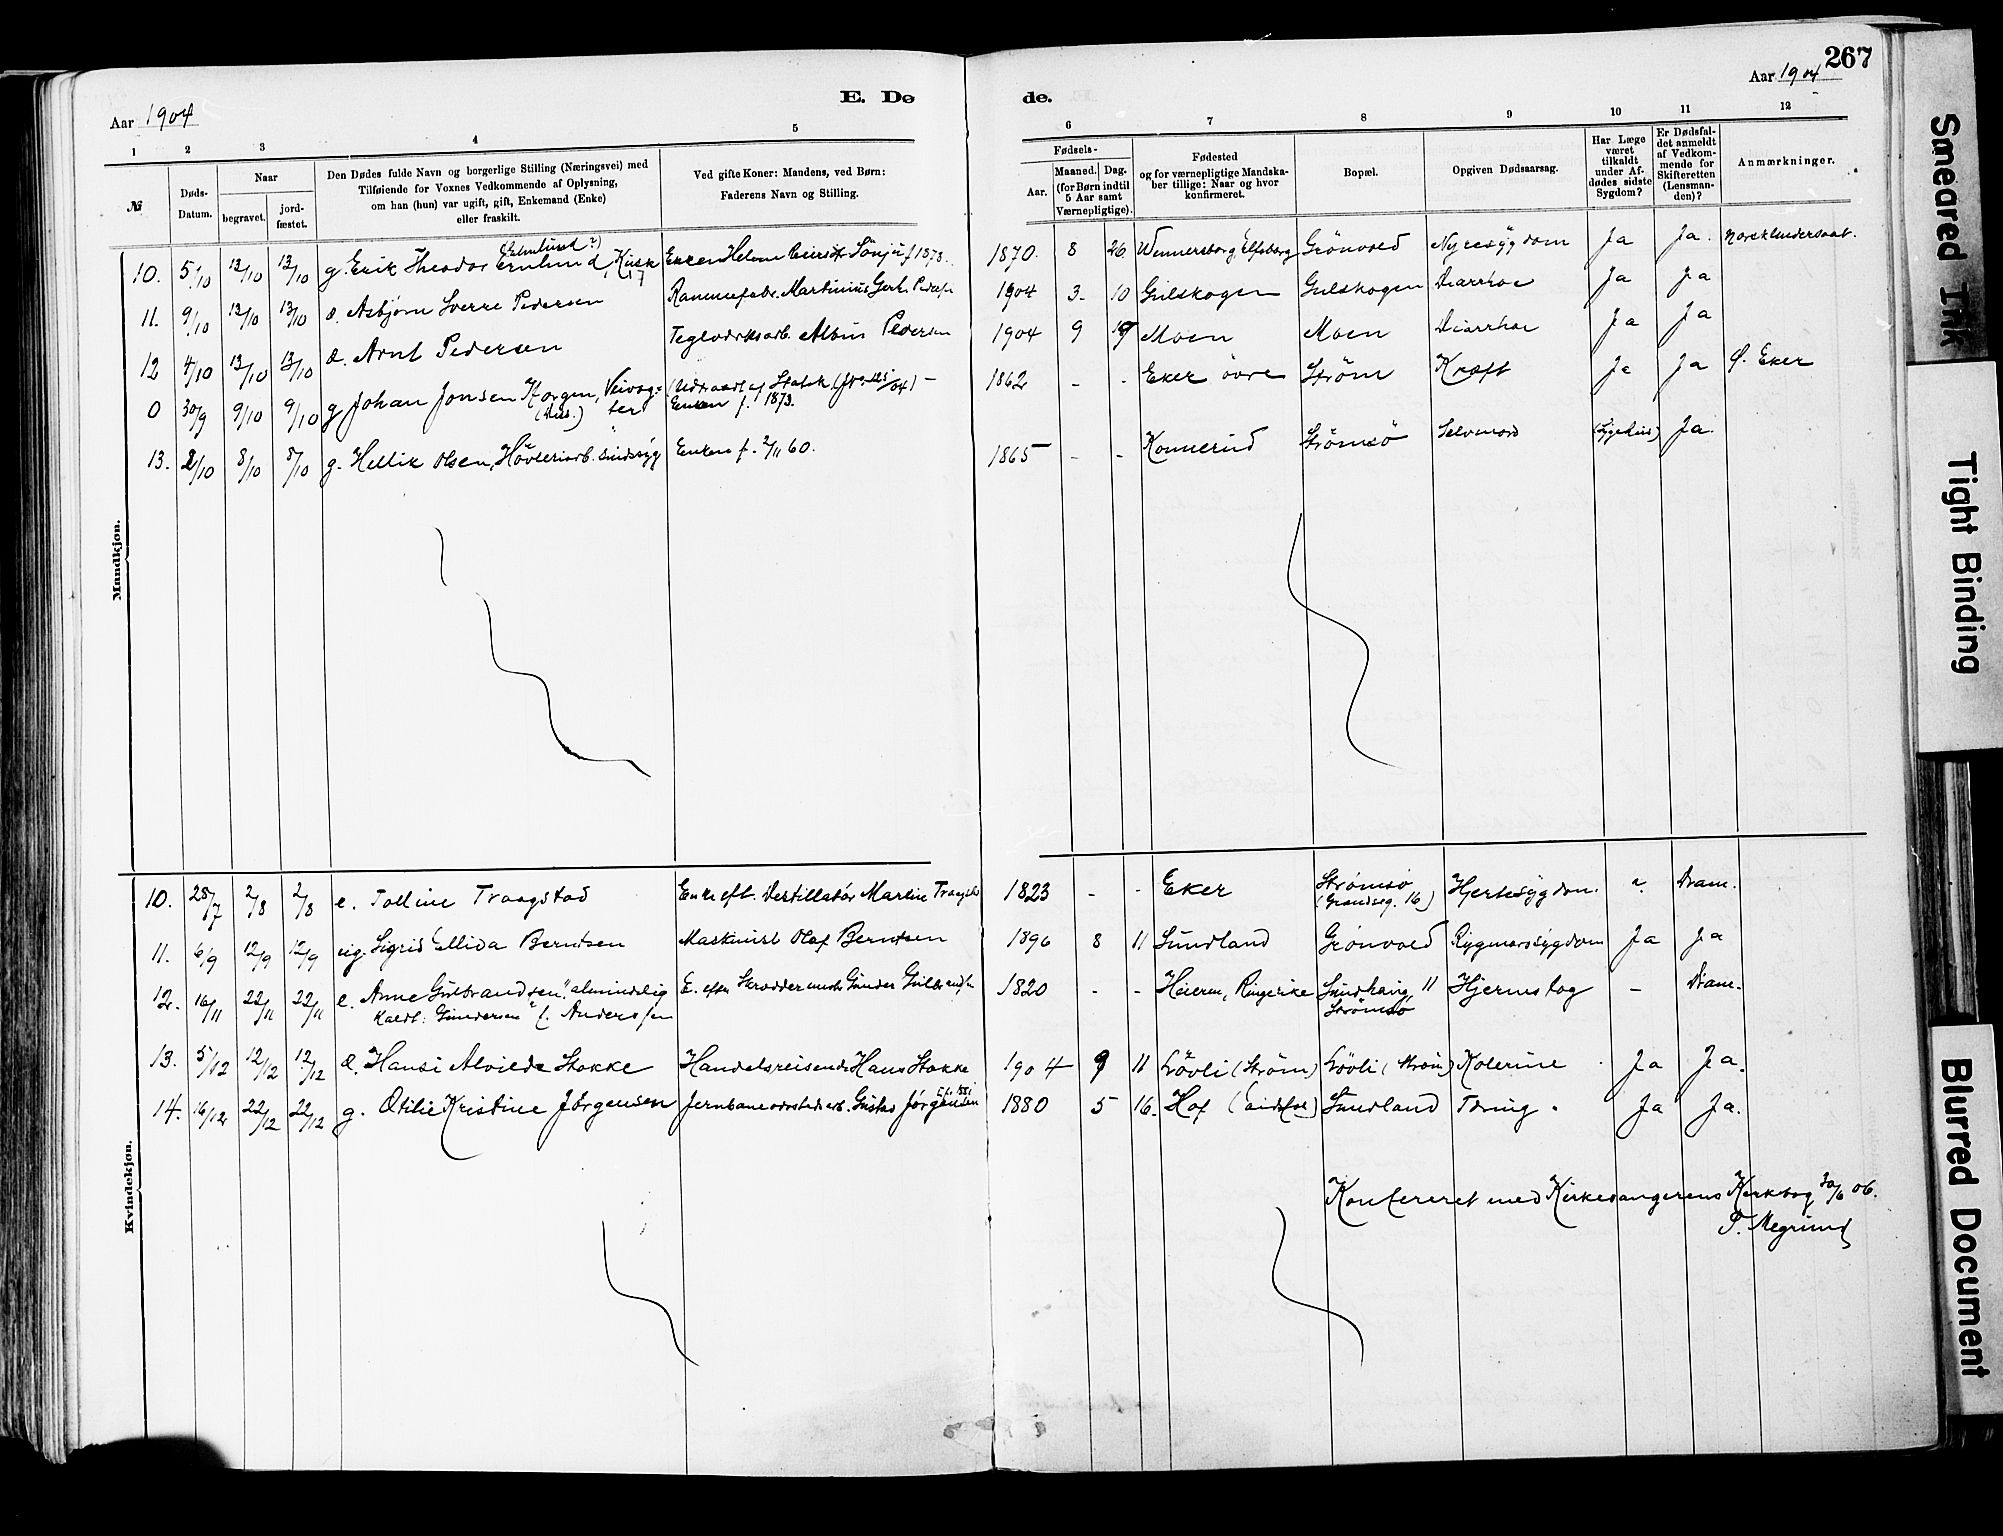 267
Aar 1904
E. Dø
de.
Aar 1904
1 2 3 4 5
6 7 8 9 10 11 12
№
Døds-Datum.
Naar
begravet.
jord-fæstet.
Den Dødes fulde Navn og borgerlige Stilling (Næringsvei) med
Tilføiende for Voxnes Vedkommende af Oplysning,
om han (hun) var ugift, gift, Enkemand (Enke)
eller fraskilt.
Ved gifte Koner: Mandens, ved Børn:
Faderens Navn og Stilling.
Fødsels-
Aar.
Maaned. Dag.
(for Børn indtil
5 Aar samt
Værnepligtige).
Fødested
og for værnepligtige Mandska-
ber tillige: Naar og hvor
konfirmeret.
Bopæl.
Opgiven Dødsaarsag.
Har Læge
været
tilkaldt
under Af-
dødes sidste
Sygdom?
Er Dødsfal-
det anmeldt
af Vedkom-
mende for
Skifteretten
(Lensman-
den)?
Anmærkninger.
Mandkjøn.
10. 5/10 12/10 12/10 g. Erik Theodor Ernlund, Kusk Enken Helene f 1878. 1870. 8 26. Wennersborg, Elfsborg Grönvold Nyresygdom Ja Ja. norsk undersaat.
11. 9/10 13/10 13/10 Asbjørn Sverre Pedersen Martinius Gert. Peders. 1904 3. 10 Gulskogen Gulskogen Diarrhoe Ja Ja
12 4/10 13/10 13/10 Arnt Pedersen Teglværksarb. Albin Pedersen 1904 9 Moen Moen Diarrhoe Ja Ja
0 30/9 9/10 9/10 g Johan Jonsen Horgen, Veivog-
ter Enken f. 1873. 1862 - - Eker övre Ström Kræft Ja Ja Ø. Eker
13. 2/10 8/10 8/10 g. Hellik Olsen, Hövleriarb. sindssyg Enken f. 2/11 60. 1865 - - Konnerud Strömsö Selvmord (Sygehus) Ja.
Kvindekjøn.
10. 28/7 2/8 2/8 e. Talline Traagstad Enke eft. Destillatör Martin Traagstad 1823 - - Eker Strømsø
(Grandseg. 16) Hjertesygdom. Dram.
11. 6/9 12/9 12/9 ug. Sigrid Ellida Berntsen Maskinist Olaf Berntsen 1896 8 11 Sundland Grönvold Rygmarvsygdom Ja Ja
12. 16/11 22/11 22/11 e. Anne Gulbrandsen, "almindelig
kaldt: Gundersen" f. Andersen E. efter Skrædderm. Gunder Gulbrands. 1820 - - Ringerike Sundhaug 11
Strömsø Hjernslag - Dram.
13. 5/12 12/12 12/12 Hansi Alvilde Stokke Handelsreisende Hans Stokke 1904 9 11 Lövli (Strøm) Lövli (Strøm) Kolerine Ja Ja.
14. 16/12 22/12 22/12 g. Otilie Kristine Jörgensen Jernbaneværkstedsarb. Gustav Jörgensen 1880 5 16. Hof (Eidsfos) Sundland Tæring. Ja Ja.
Konfereret med Kirkesangerens Kirkbog 30/6 06.
P. Megrund
Smeared Ink
Tight Binding
Blurred Document